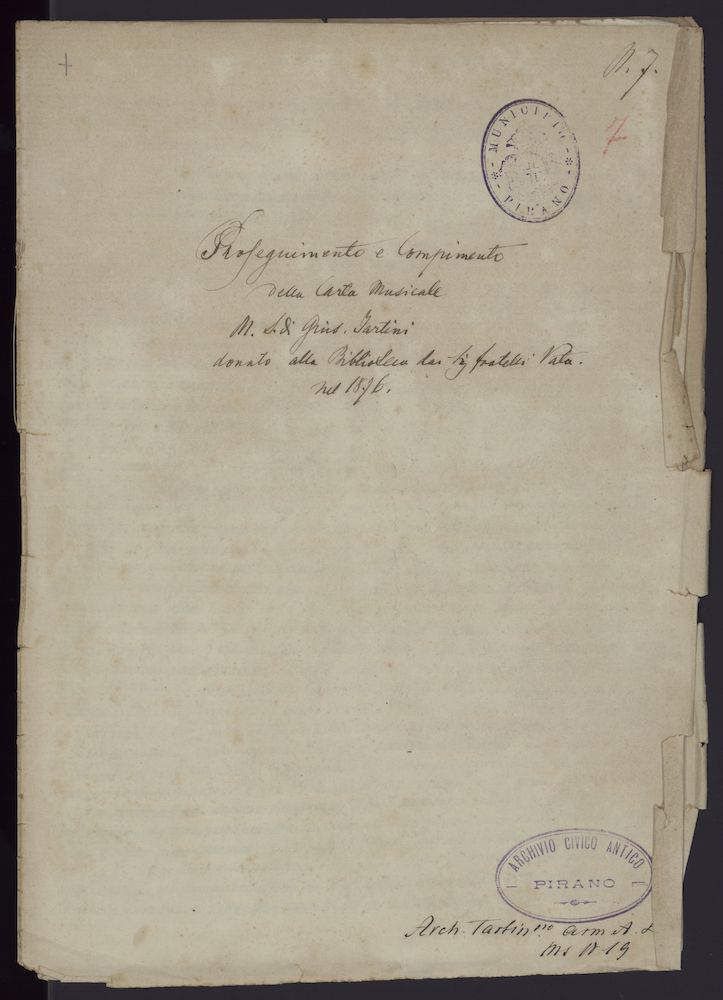 N. 7.
7
MUNICIPIO
PIRANO
Proseguimento e Compimento
della Carta Musicale
M. S. di Gius. Tartini
donato alla Biblioteca dai Sig fratelli Vatta.
nel 1876.
ARCHIVIO CIVICO ANTICO
PIRANO
Arch. Tartinno Arm. A. 2
Ms N 19